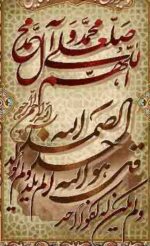 اللهم صل علی محمد و آل محمد
بسم الله الرحمن الرحیم
قل هو الله احد الله الصمد لم یلد ولم یولد
ولم یکن له کفوا احد